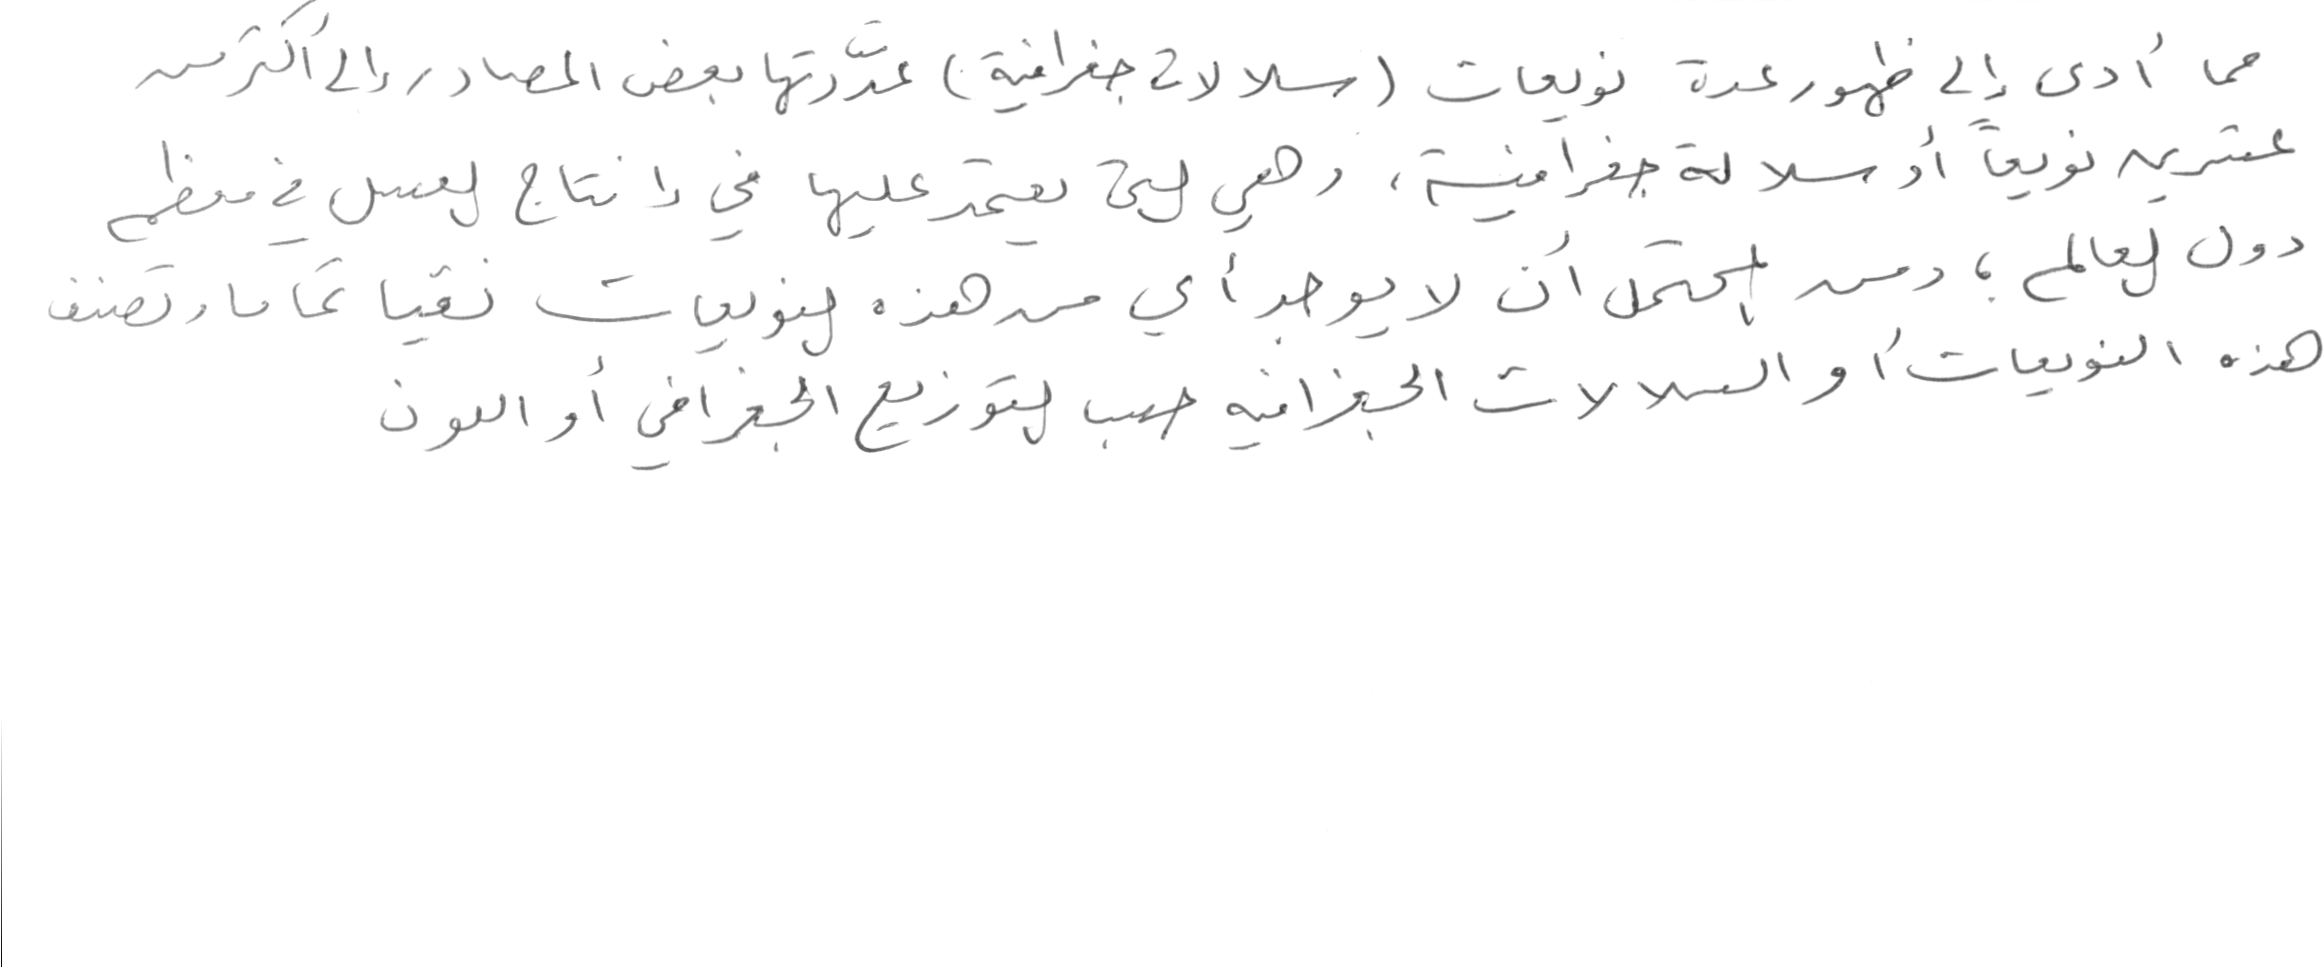 مما أدى إلى ظهور عدة نويعات (سلالات جغرافية) عدَّدتها بعض المصادر إلى أكثر من
عشرين نويعاً أو سلالة جغرافية، وهي التي يعتمد عليها في إنتاج العسل في معظم
دول العالم؛ ومن المحتمل أن لا يوجد أي من هذه النويعات نقيا تماما وتصنف
هذه النويعات أو السلالات الجغرافيه حسب التوزيع الجغرافي أو اللون